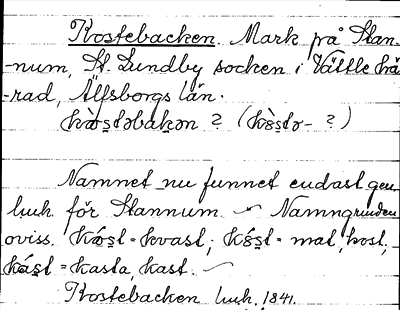 Kostebacken. Mark på Stan-
-num, St. Lundby socken i Vättle hä-
-rad, Älfsborgs län.
kòs̠təbakən ? (kòs̠tə- ?)
Namnet nu funnet endast gen.
luh. för Stannum. ~ Namngrunden
oviss. = kvast; = mal, kost;
= kasta, kast. ~
Kostebacken luh. 1841.